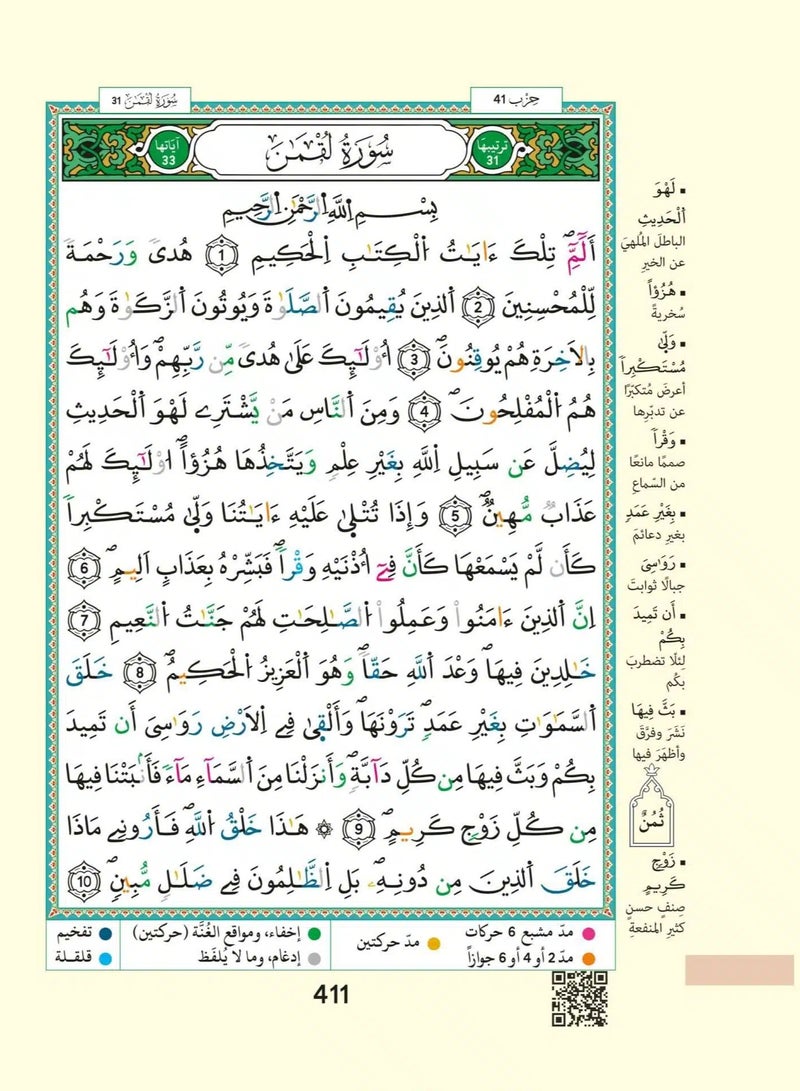 سُورَةُ لُقْمَٰنَ 31
حِزْب 41
تَرتيبها 31
سُورَةُ لُقْمَٰنَ
آيَاتها 33
بِسْمِ اِ۬للَّهِ اِ۬لرَّحْمَٰنِ اِ۬لرَّحِيمِ
أَلَٓمِّٓۖ تِلْكَ ءَايَٰتُ اُ۬لْكِتَٰبِ اِ۬لْحَكِيمِ 1 هُدىٗ وَرَحْمَةٗ
لِّلْمُحْسِنِينَ 2 اَ۬لذِينَ يُقِيمُونَ اَ۬لصَّلَوٰةَ وَيُوتُونَ اَ۬لزَّكَوٰةَ وَهُم
بِالَاخِرَةِ هُمْ يُوقِنُونَۖ 3 أُوْلَٰٓئِكَ عَلَىٰ هُدىٗ مِّن رَّبِّهِمْۖ وَأُوْلَٰٓئِكَ
هُمُ اُ۬لْمُفْلِحُونَۖ 4 وَمِنَ اَ۬لنَّاسِ مَنْ يَّشْتَرِے لَهْوَ اَ۬لْحَدِيثِ
لِيُضِلَّ عَن سَبِيلِ اِ۬للَّهِ بِغَيْرِ عِلْمٖ وَيَتَّخِذُهَا هُزُؤاًۖ ا۟وْلَٰٓئِكَ لَهُمْ
عَذَابٞ مُّهِينٞۖ 5 وَإِذَا تُتْلَىٰ عَلَيْهِ ءَايَٰتُنَا وَلَّىٰ مُسْتَكْبِراٗ
كَأَن لَّمْ يَسْمَعْهَا كَأَنَّ فِےٓ أُذْنَيْهِ وَقْراٗۖ فَبَشِّرْهُ بِعَذَابٍ اَلِيمٍۖ 6
اِنَّ اَ۬لذِينَ ءَامَنُواْ وَعَمِلُواْ اُ۬لصَّٰلِحَٰتِ لَهُمْ جَنَّٰتُ اُ۬لنَّعِيمِ 7
خَٰلِدِينَ فِيهَاۖ وَعْدَ اَ۬للَّهِ حَقّاٗۖ وَهُوَ اَ۬لْعَزِيزُ اُ۬لْحَكِيمُۖ 8 خَلَقَ
اَ۬لسَّمَٰوَٰتِ بِغَيْرِ عَمَدٖ تَرَوْنَهَاۖ وَأَلْقَىٰ فِے اِ۬لَارْضِ رَوَٰسِيَ أَن تَمِيدَ
بِكُمْ وَبَثَّ فِيهَا مِن كُلِّ دَآبَّةٖۖ وَأَنزَلْنَا مِنَ اَ۬لسَّمَآءِ مَآءٗ فَأَنۢبَتْنَا فِيهَا
مِن كُلِّ زَوْجٖ كَرِيمٍۖ 9 ۞ هَٰذَا خَلْقُ اُ۬للَّهِۖ فَأَرُونِے مَاذَا
خَلَقَ اَ۬لذِينَ مِن دُونِهِۦۖ بَلِ اِ۬لظَّٰلِمُونَ فِے ضَلَٰلٖ مُّبِينٖۖ 10
▪ لَهْوَ
اَ۬لْحَدِيثِ
الباطلَ المُلْهِيَ
عن الخيرِ
▪ هُزُؤاً
سُخريةً
▪ وَلَّىٰ
مُسْتَكْبِراٗ
أعرضَ مُتكبِّرًا
عن تدبّرِها
▪ وَقْراٗ
صممًا مانعًا
من السّماعِ
▪ بِغَيْرِ عَمَدٖ
بغير دعائمَ
▪ رَوَٰسِيَ
جبالًا ثوابتَ
▪ أَن تَمِيدَ
بِكُمْ
لئلّا تضطربَ
بكُم
▪ بَثَّ فِيهَا
نَشَرَ وفرَّقَ
وأظهَرَ فيها
ثُمُنٌ
▪ زَوْجٖ
كَرِيمٍ
صِنفٍ حسنٍ
كثيرِ المنفعةِ
مدّ مشبع 6 حركات
مدّ 2 أو 4 أو 6 جوازاً
مدّ حركتين
إخفاء، ومواقع الغُنَّة (حركتين)
إدغام، وما لا يُلفَظ
تفخيم
قلقـلـة
411